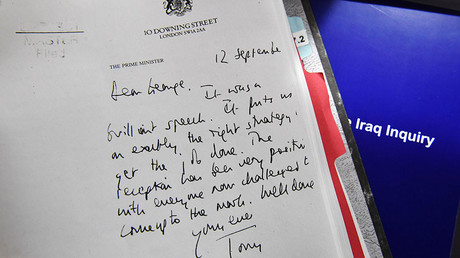 10 DOWNING STREET
LONDON SW1A 2AA
THE PRIME MINISTER
12 September
Dear George,
It was a
brilliant speech. It puts us
on exactly the right strategy,
get the job done. The
reception has been very positive
with everyone now challenged to
come up to the mark. Well done
Yours ever
Tony
Iraq Inquiry